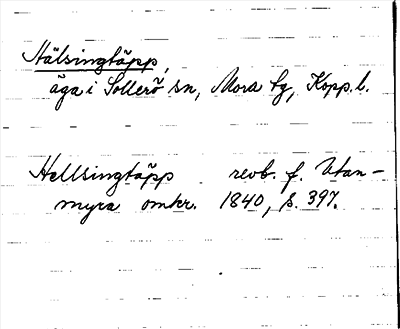 Hälsingtäpp,
äga i Sollerö sn, Mora tg, Kopp. l.
Hellsingtäpp revb. f. Utan-
myra omkr. 1840, s. 397.